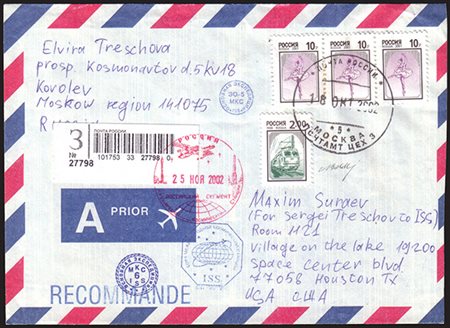 Elvira Treschova
prosp. Kosmonavtov d.5 kv18
Korolev
Moskow region 141075
Russia
РОССИЯ 10р
РОССИЯ 10р
РОССИЯ 10р
ПОЧТА РОССИИ
18 ОКТ 2002
МОСКВА
* 5 *
ПОЧТАМТ ЦЕХ 3
РОССИЯ
2.00р
30-5
МКС
3
№
27798
ПОЧТА РОССИИ
101753 33 27798 0
РОССИЯ
25 НОЯ 2002
РОССИЙСКИЙ СЕГМЕНТ
A PRIOR
МКС
6
ISS
ISS
RECOMMANDE
Maxim Suraev
(For Sergei Treschov to ISS)
Room H21
village on the lake 19200
space center blvd.
77058 Houston TX
USA США